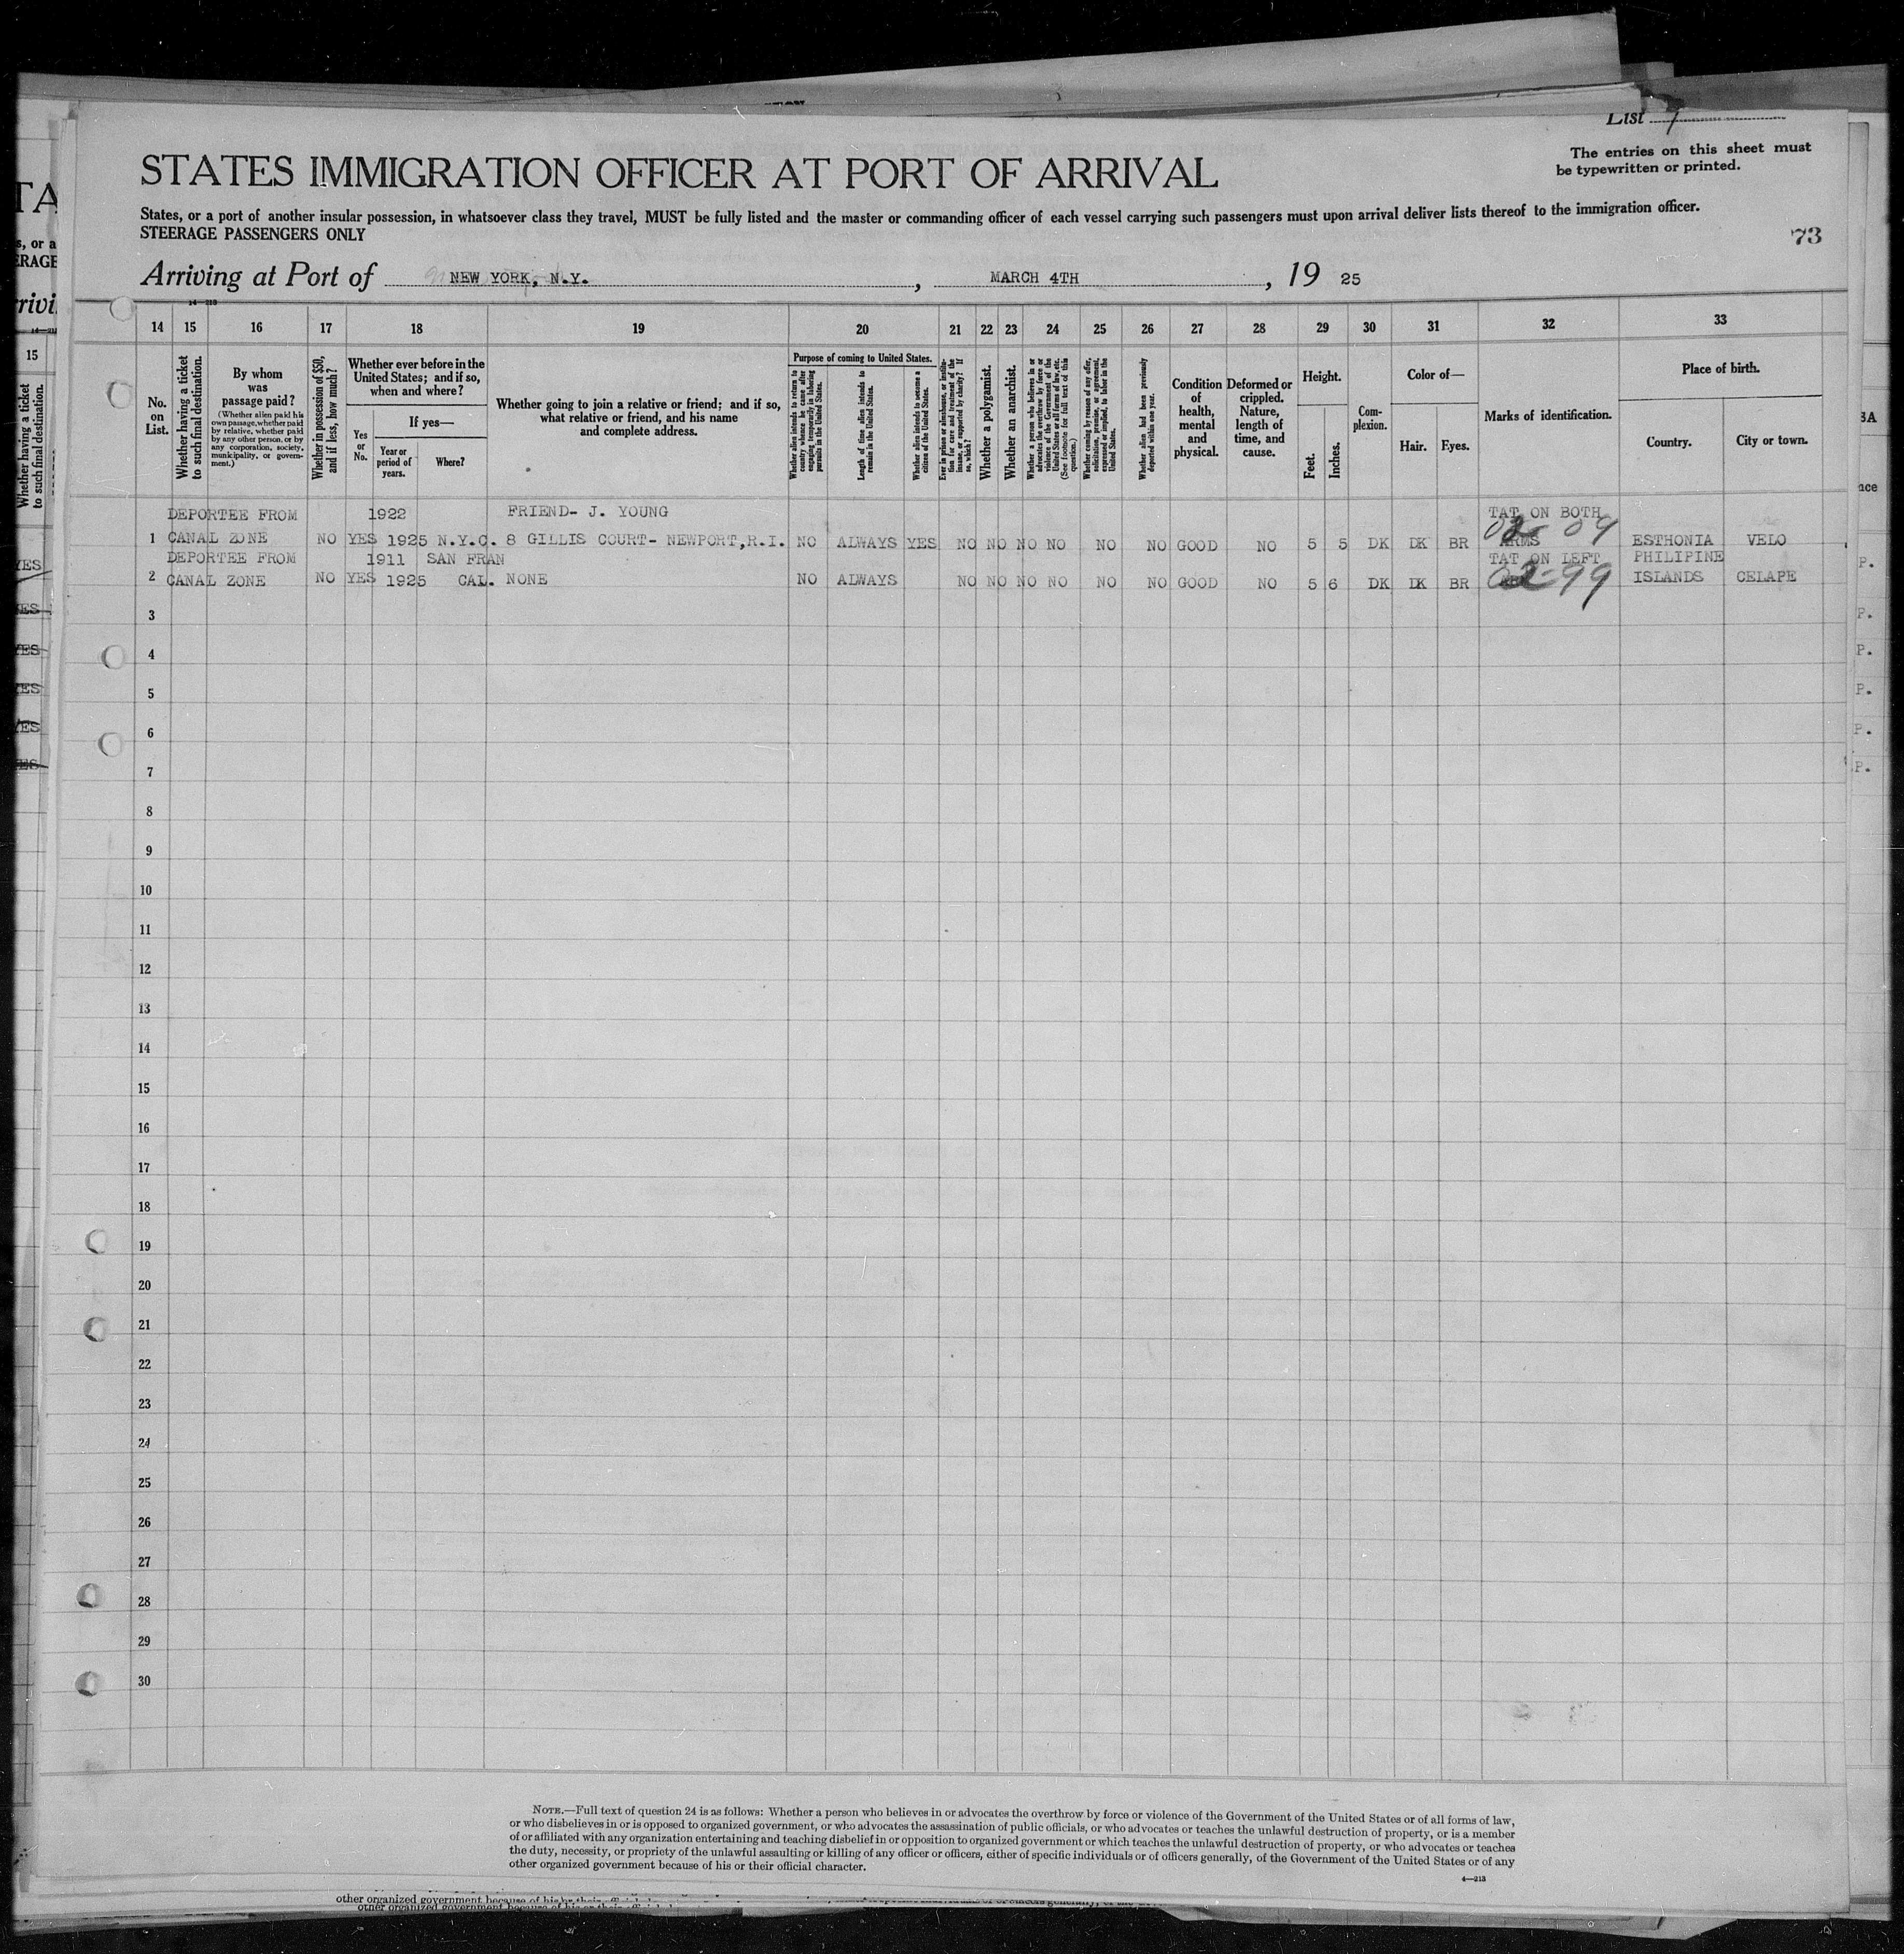 List 7
The entries on this sheet must
be typewritten or printed.
STATES IMMIGRATION OFFICER AT PORT OF ARRIVAL
States, or a port of another insular possession, in whatsoever class they travel, MUST be fully listed and the master or commanding officer of each vessel carrying such passengers must upon arrival deliver lists thereof to the immigration officer.
STEERAGE PASSENGERS ONLY
73
Arriving at Port of NEW YORK, N.Y. , MARCH 4TH , 19 25
14—213
14 15 16 17 18 19 20 21 22 23 24 25 26 27 28 29 30 31 32 33
No. on List.
Whether having a ticket to such final destination.
By whom was passage paid?
(Whether alien paid his own passage, whether paid by relative, whether paid by any other person, or by any corporation, society, municipality, or government.)
Whether in possession of $50, and if less, how much?
Whether ever before in the United States; and if so, when and where?
Yes or No.
If yes—
Year or period of years.
Where?
Whether going to join a relative or friend; and if so, what relative or friend, and his name and complete address.
Purpose of coming to United States.
Whether alien intends to return to country whence he came after engaging temporarily in laboring pursuits in the United States.
Length of time alien intends to remain in the United States.
Whether alien intends to become a citizen of the United States.
Ever in prison or almshouse, or institution for care and treatment of the insane, or supported by charity? If so, which?
Whether a polygamist.
Whether an anarchist.
Whether a person who believes in or advocates the overthrow by force or violence of the Government of the United States or all forms of law, etc. (See footnote for full text of this question.)
Whether coming by reason of any offer, solicitation, promise, or agreement, expressed or implied, to labor in the United States.
Whether alien had been previously deported within one year.
Condition of health, mental and physical.
Deformed or crippled. Nature, length of time, and cause.
Height.
Feet.
Inches.
Complexion.
Color of—
Hair.
Eyes.
Marks of identification.
Place of birth.
Country.
City or town.
DEPORTEE FROM 1922 FRIEND- J. YOUNG TAT ON BOTH
1 CANAL ZONE NO YES 1925 N.Y.C. 8 GILLIS COURT- NEWPORT,R.I. NO ALWAYS YES NO NO NO NO NO NO GOOD NO 5 5 DK DK BR ARMS ESTHONIA VELO
DEPORTEE FROM 1911 SAN FRAN TAT ON LEFT PHILIPINE
2 CANAL ZONE NO YES 1925 CAL. NONE NO ALWAYS NO NO NO NO NO NO GOOD NO 5 6 DK DK BR 02-99 ISLANDS CELAPE
3
4
5
6
7
8
9
10
11
12
13
14
15
16
17
18
19
20
21
22
23
24
25
26
27
28
29
30
NOTE.—Full text of question 24 is as follows: Whether a person who believes in or advocates the overthrow by force or violence of the Government of the United States or of all forms of law,
or who disbelieves in or is opposed to organized government, or who advocates the assassination of public officials, or who advocates or teaches the unlawful destruction of property, or is a member
of or affiliated with any organization entertaining and teaching disbelief in or opposition to organized government or which teaches the unlawful destruction of property, or who advocates or teaches
the duty, necessity, or propriety of the unlawful assaulting or killing of any officer or officers, either of specific individuals or of officers generally, of the Government of the United States or of any
other organized government because of his or their official character.
4—213